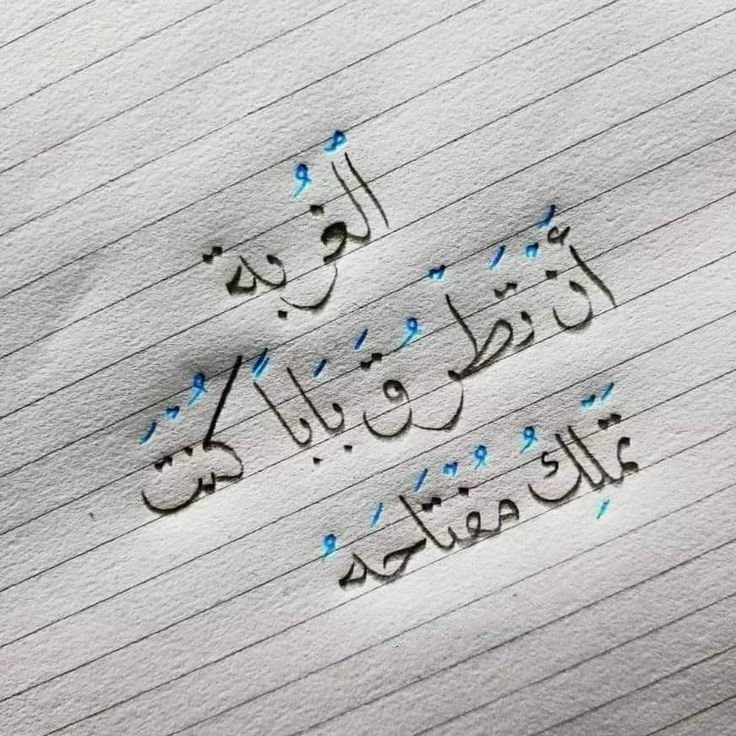 الغُربة
أَنْ تَطْرُقَ بَابَاً كُنْتَ
تَمْلِكُ مُفْتَاحَهُ